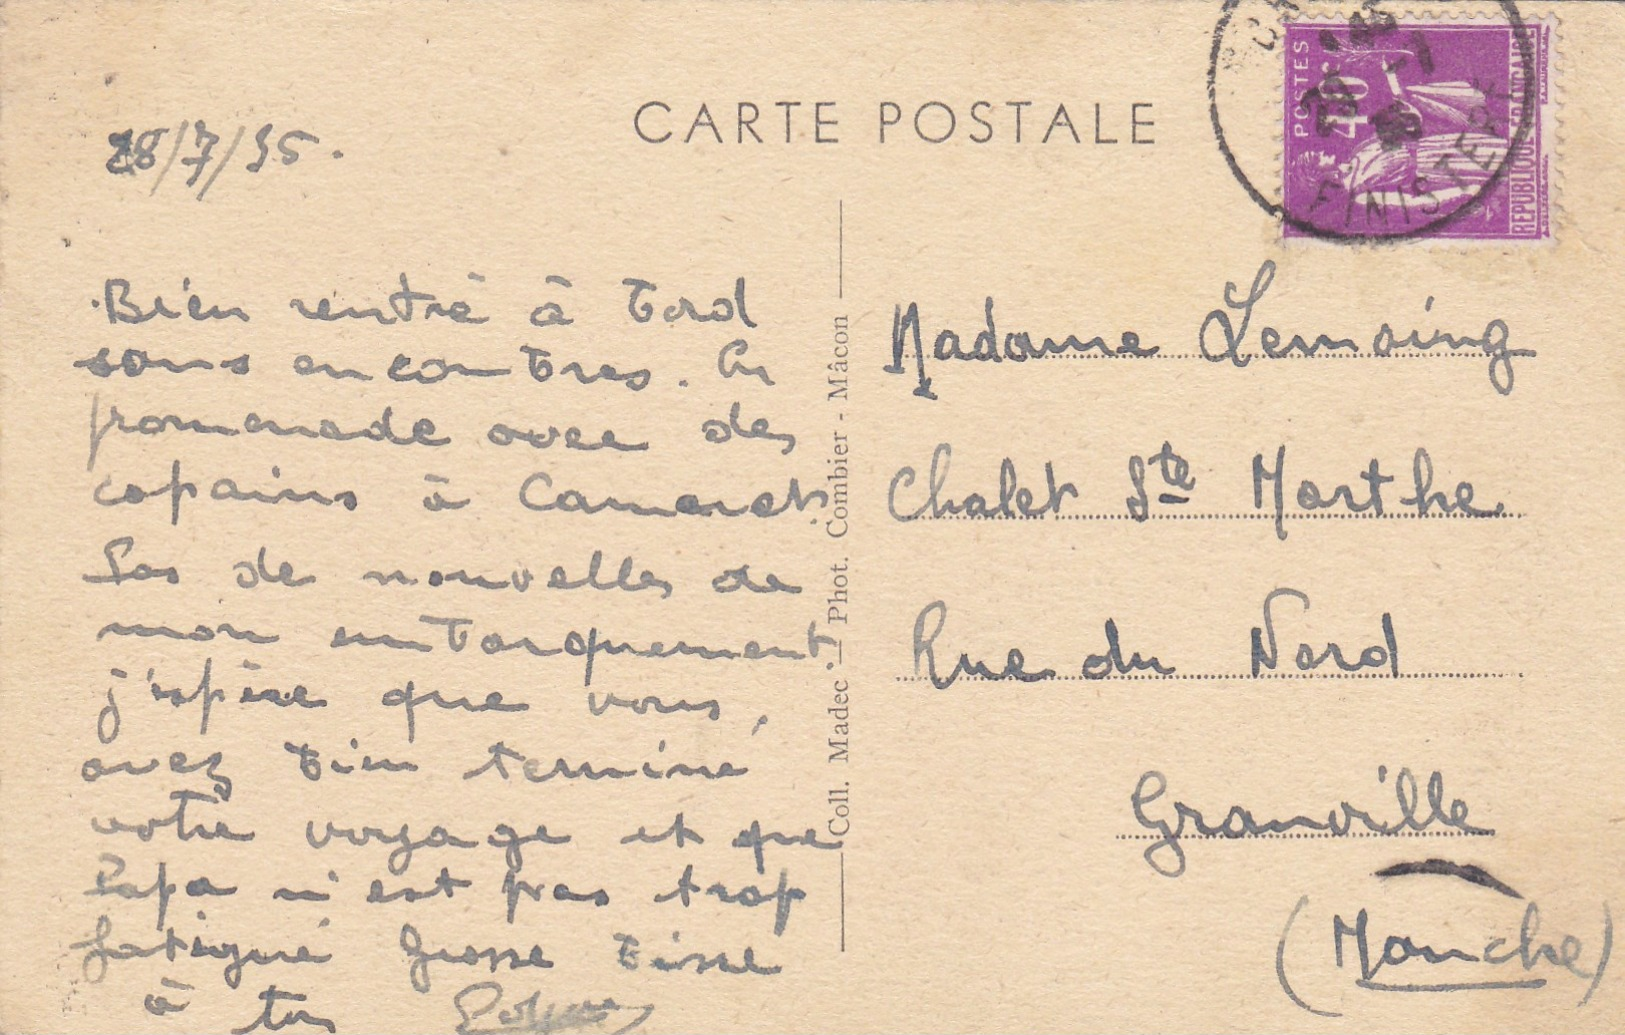 CARTE POSTALE
28/7/35.
POSTES
40c
REPUBLIQUE FRANÇAISE
FINISTERE
Bien rentré à bord
sans encombres. En
promenade avec des
copains à Camaret.
Pas de nouvelles de
mon embarquement.
j'espère que vous
avez bien terminé
votre voyage et que
Papa n'est pas trop
fatigué Grosse bise
à tous
Coll. Madec. — Phot. Combier - Mâcon
Madame Lemoing
Chalet Ste Marthe
Rue du Nord
Granville
(Manche)